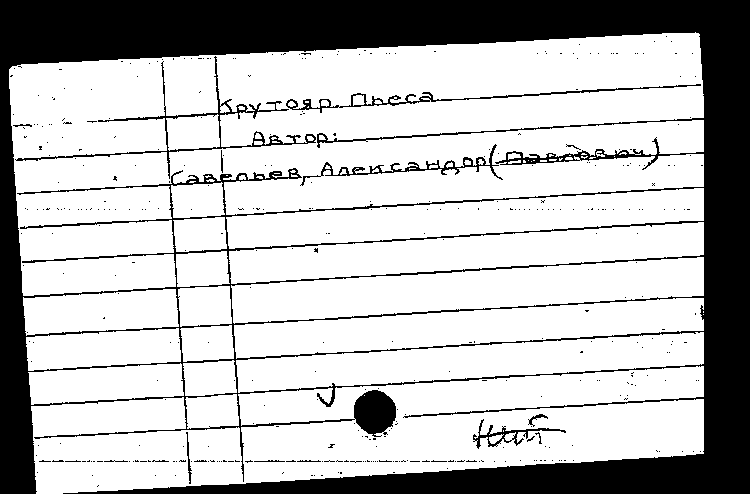 Крутояр. Пьеса
Автор:
Савельев, Александр (Павлович)